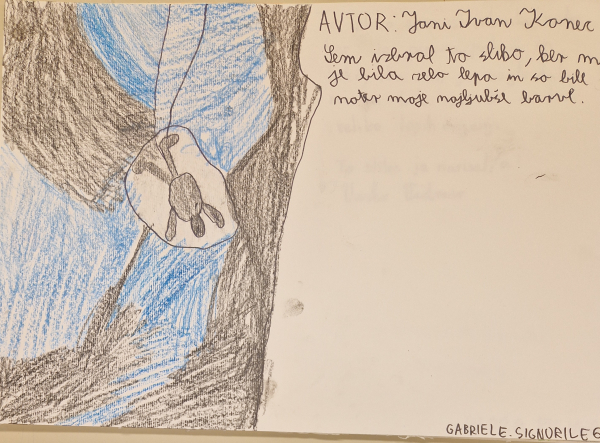 AVTOR: Jani Ivan Kanec
Sem izbral to sliko, ker m
je bila zelo lepa in so bile
notr moje najljubše barve.
GABRIELE.SIGNORILE6